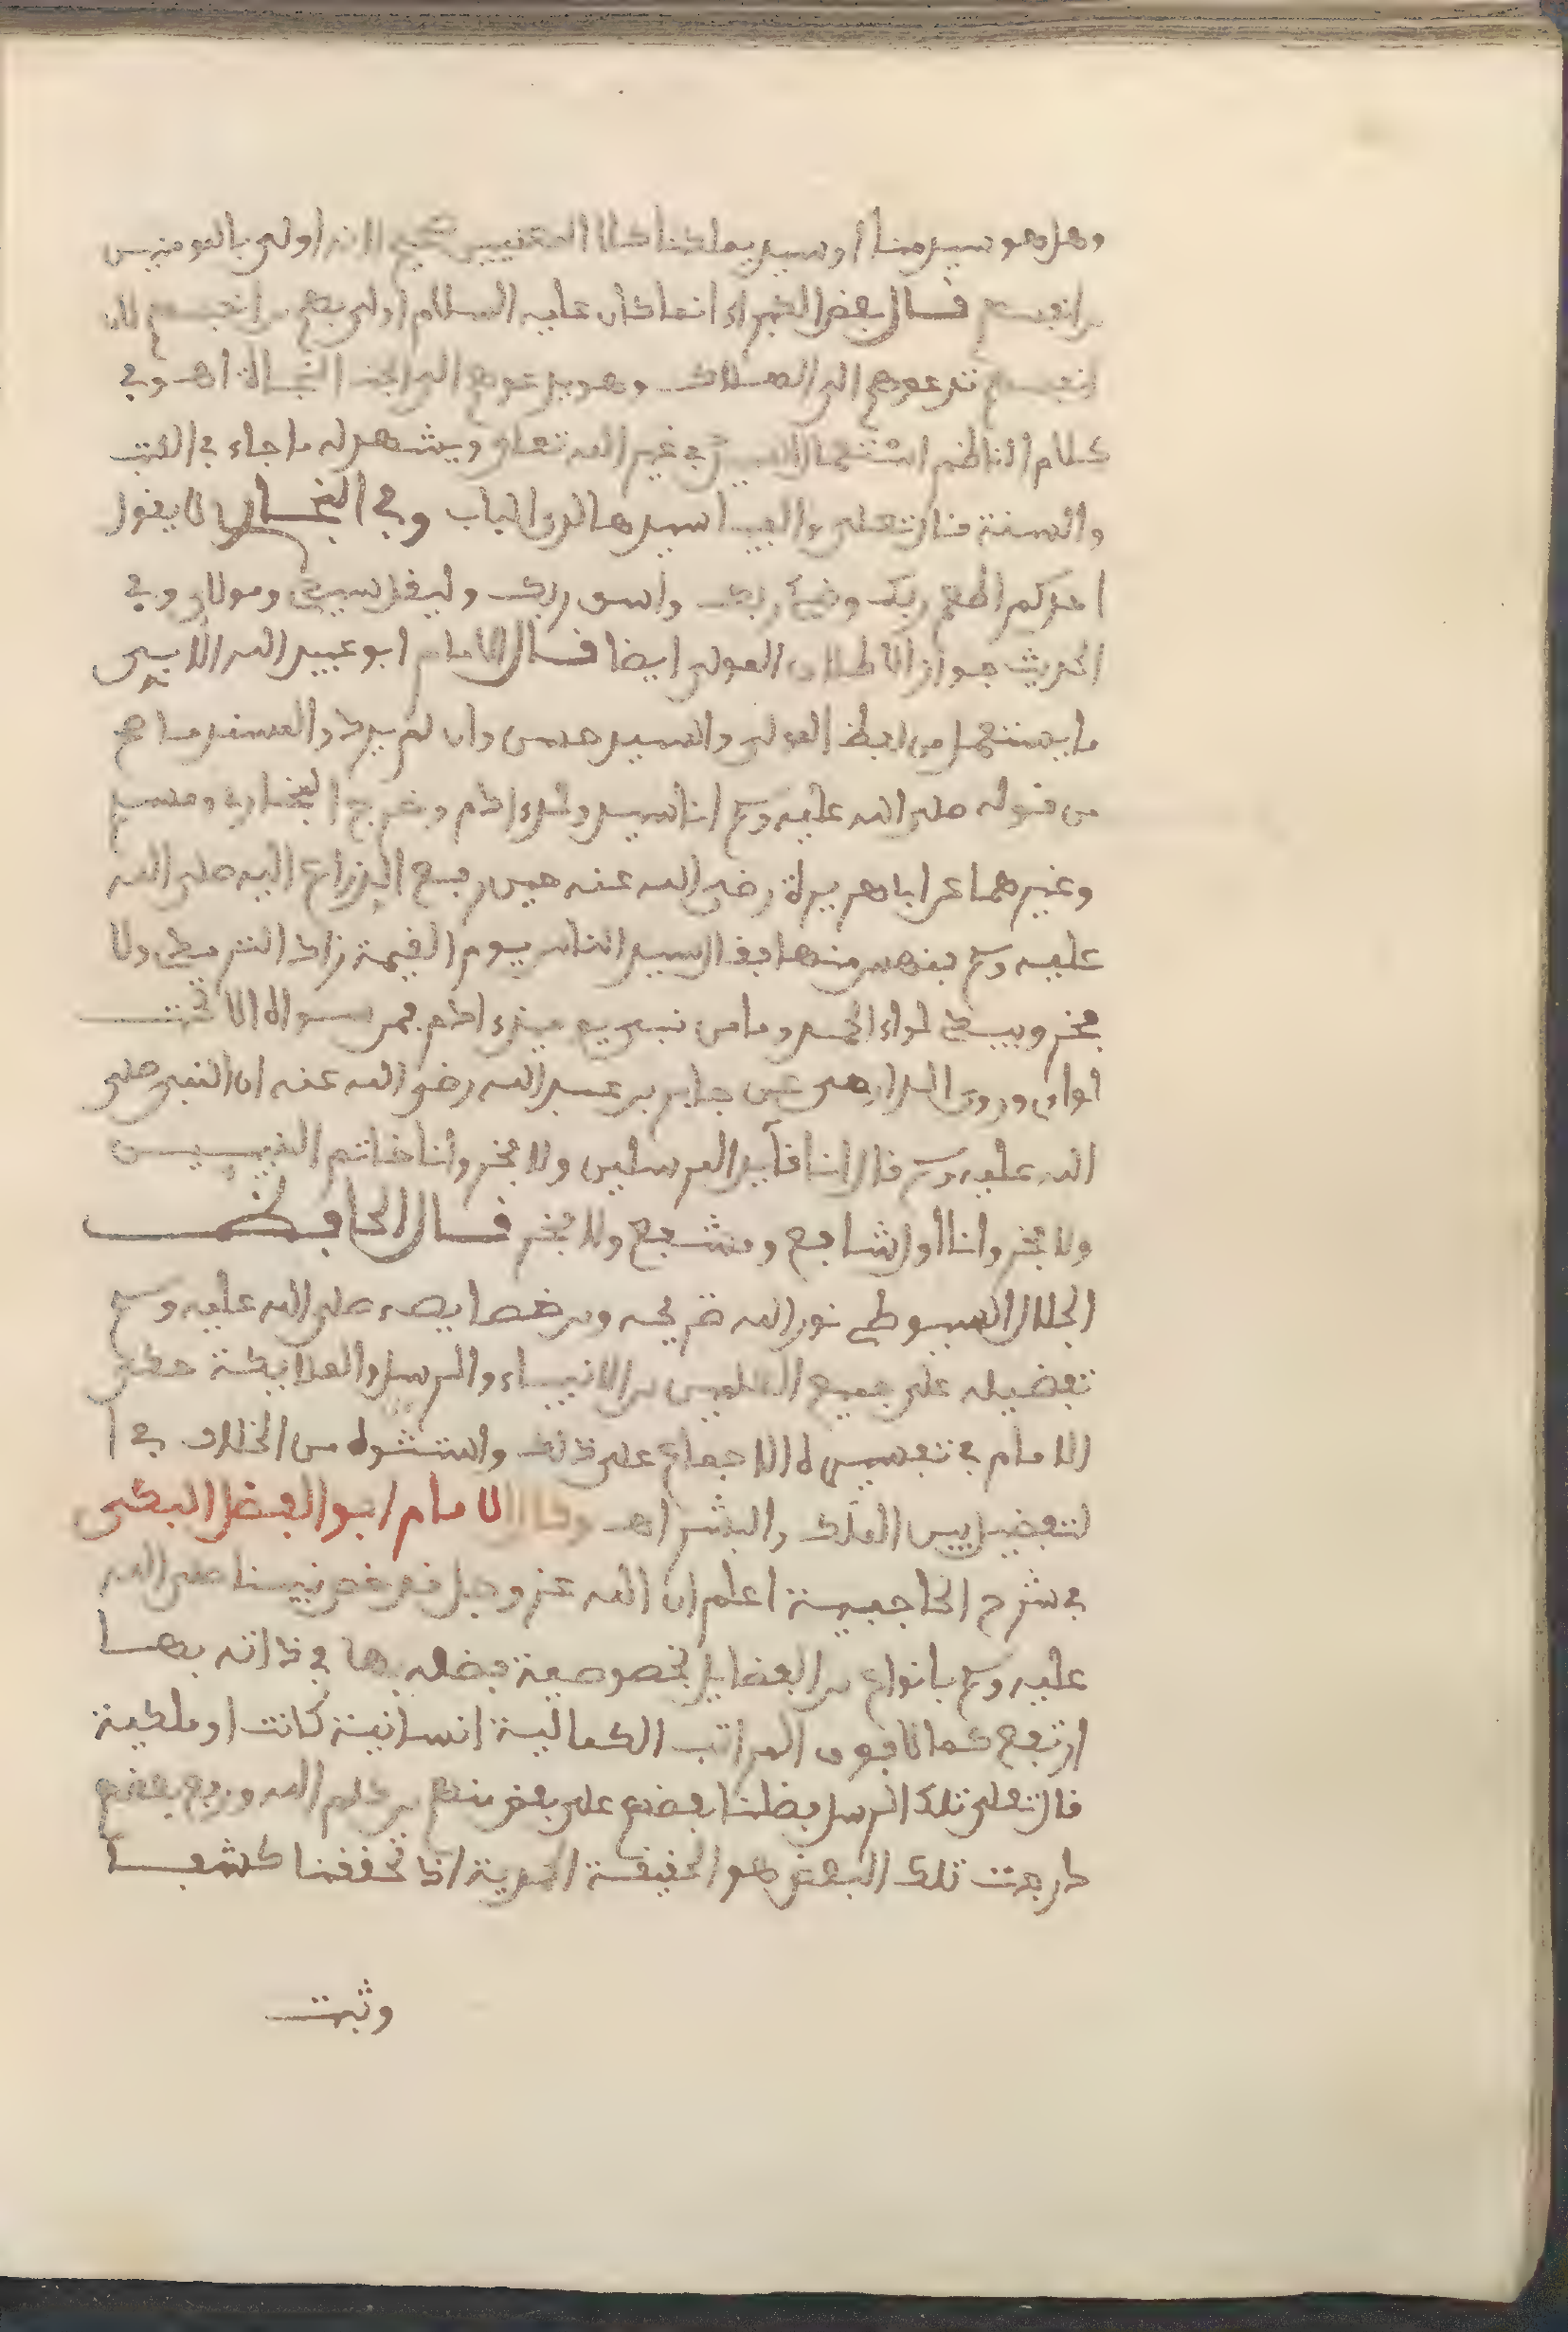 وهل هو سيدنا او سيد يملكنا كلا المعنيين صحيح لانه اولى بالمومنين
من انفسهم قال بعض الكبراء انما كان عليه السلام اولى بهم من انفسهم لان
انفسهم تدعوهم الى الهلاك وهو يدعوهم الى النجاة اهـ وفي
كلام الناظم استعمال السيد في غير الله تعالى ويشهد له ما جاء في الكتب
والسنة قال تعلى والفيا سيدها لدى الباب وفي البخاري لا يقول
احدكم اطعم ربك وضئ ربك واسق ربك وليقل سيدي ومولاي وفي
الحديث جواز الاطلاق المولى ايضا قال الامام ابو عبيد الله الابي
ما يستعمل من لفظ المولى والسيد حسن وان لم يرد والمستند ما صح
من قوله صلى الله عليه وسلم انا سيد ولد ءادم وخرج البخاري ومسلم
وغيرهما عن ابا هريرة رضي الله عنه حين رفع الذراع اليه صلى الله
عليه وسلم فنهس منها فقال سيد الناس يوم القيمة زاد الترمذي ولا
فخر وبيدي لواء الحمد وما من نبي يوميذ ءادم فمن سواه الا تحت
لواي وروى الدارمي عن جابر بن عبد الله رضي الله عنه ان النبي صلى
الله عليه وسلم قال انا قآيد المرسلين ولا فخر وانا خاتم النبيين
ولا فخر وانا اول شافع ومشفع ولا فخر قال الحافظ
الجلال السيوطي نور الله ضريحه ومن خصايصه صلى الله عليه وسلم
تفضيله على جميع العلمين من الانبياء والرسل والملايكة حكى
الامام في تفسيره الاجماع على ذلك واستثنوه من الخلاف في ا
لتفضيل بين الملك والبشر اهـ وقال الامام ابو الفضل البكي
في شرح الحاجبية اعلم ان الله عز وجل قد خص نبينا صلى الله
عليه وسلم بانواع من الفضايل مخصوصية فضله بها في ذاته بها
ارتفع كمالا فوق المراتب الكمالية انسانية كانت او ملكية
قال تعلى تلك الرسل فضلنا بعضهم على بعض منهم من كلم الله ورفع بعضهم
درجت تلك البعض هو الحقيقة المحمدية اذا تحققنا كشفا
وثبت